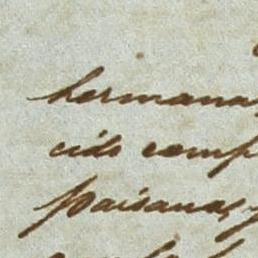 hermana
cido comp
paisanas